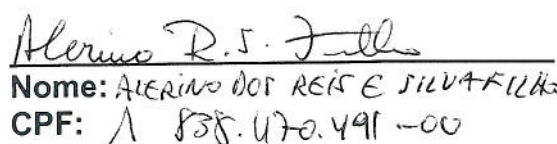 Alerino R. S. Filho
Nome: ALERINO DOS REIS E SILVA FILHO
CPF: 838.470.491-00